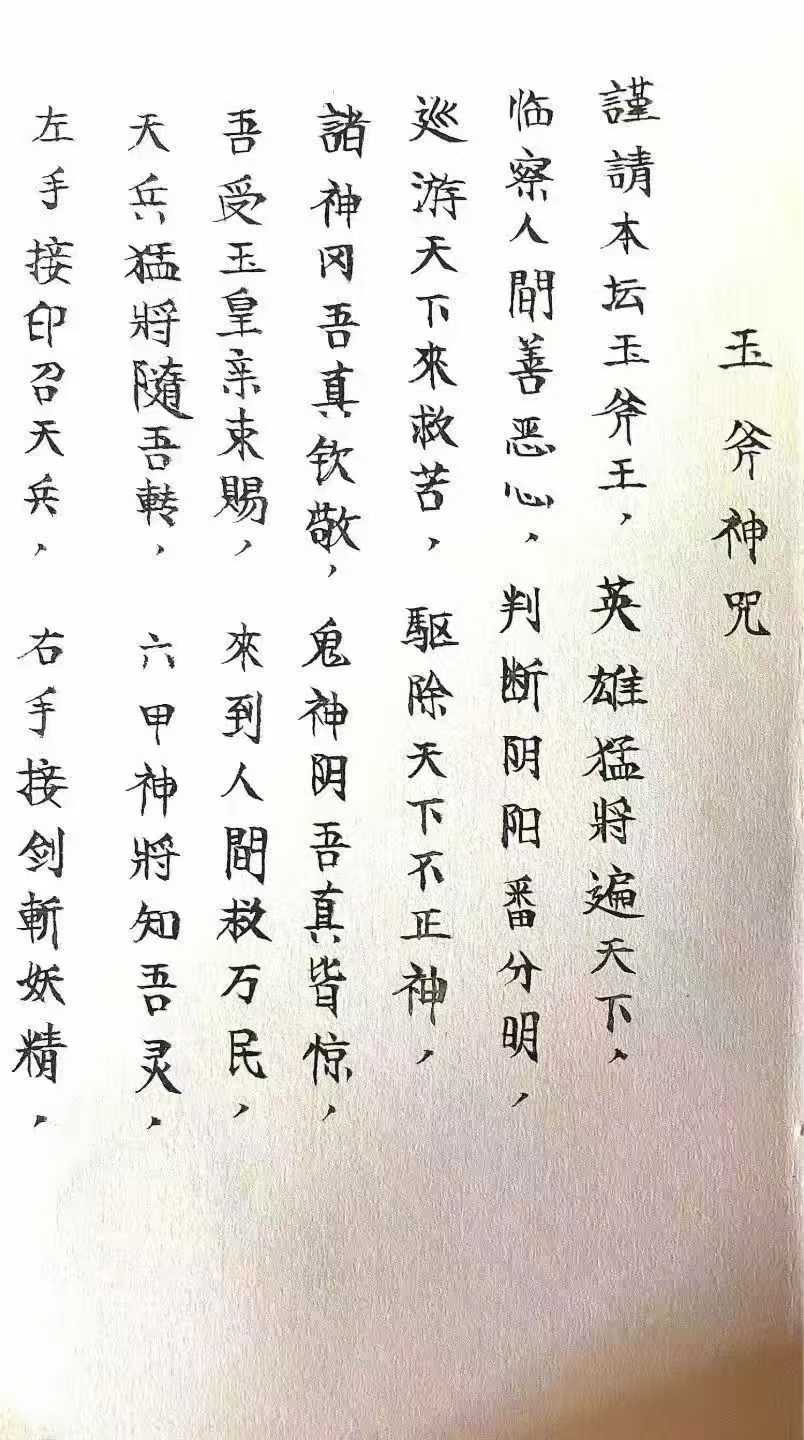 玉斧神咒
謹請本坛玉斧王，英雄猛將遍天下，
临察人間善恶心，判断阴阳番分明，
巡游天下來救苦，驅除天下不正神，
諸神冈吾真钦敬，鬼神阴吾真皆惊，
吾受玉皇亲束賜，來到人間救万民，
天兵猛將隨吾轉，六甲神將知吾灵，
左手接印召天兵，右手接剑斬妖精，